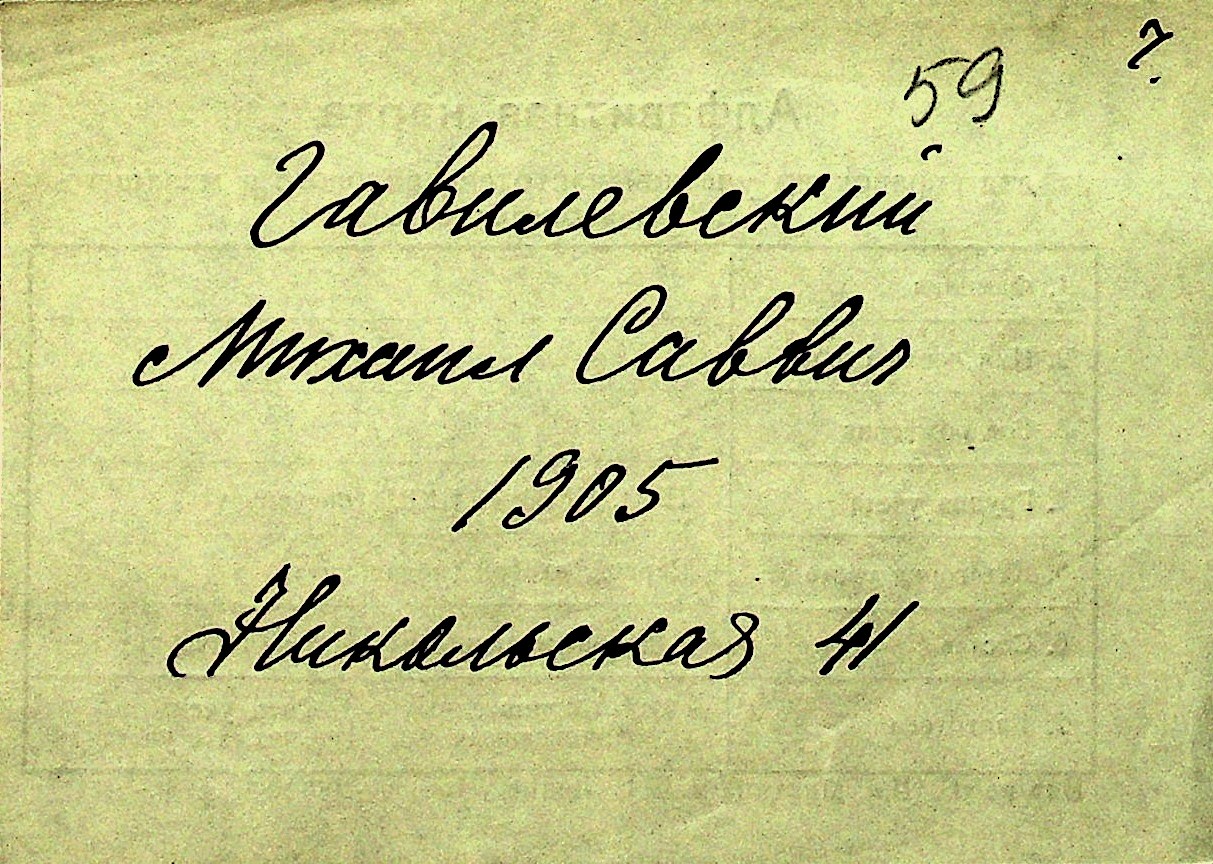 59 7.
Гавилевский
Михаил Саввич
1905
Никольская 41